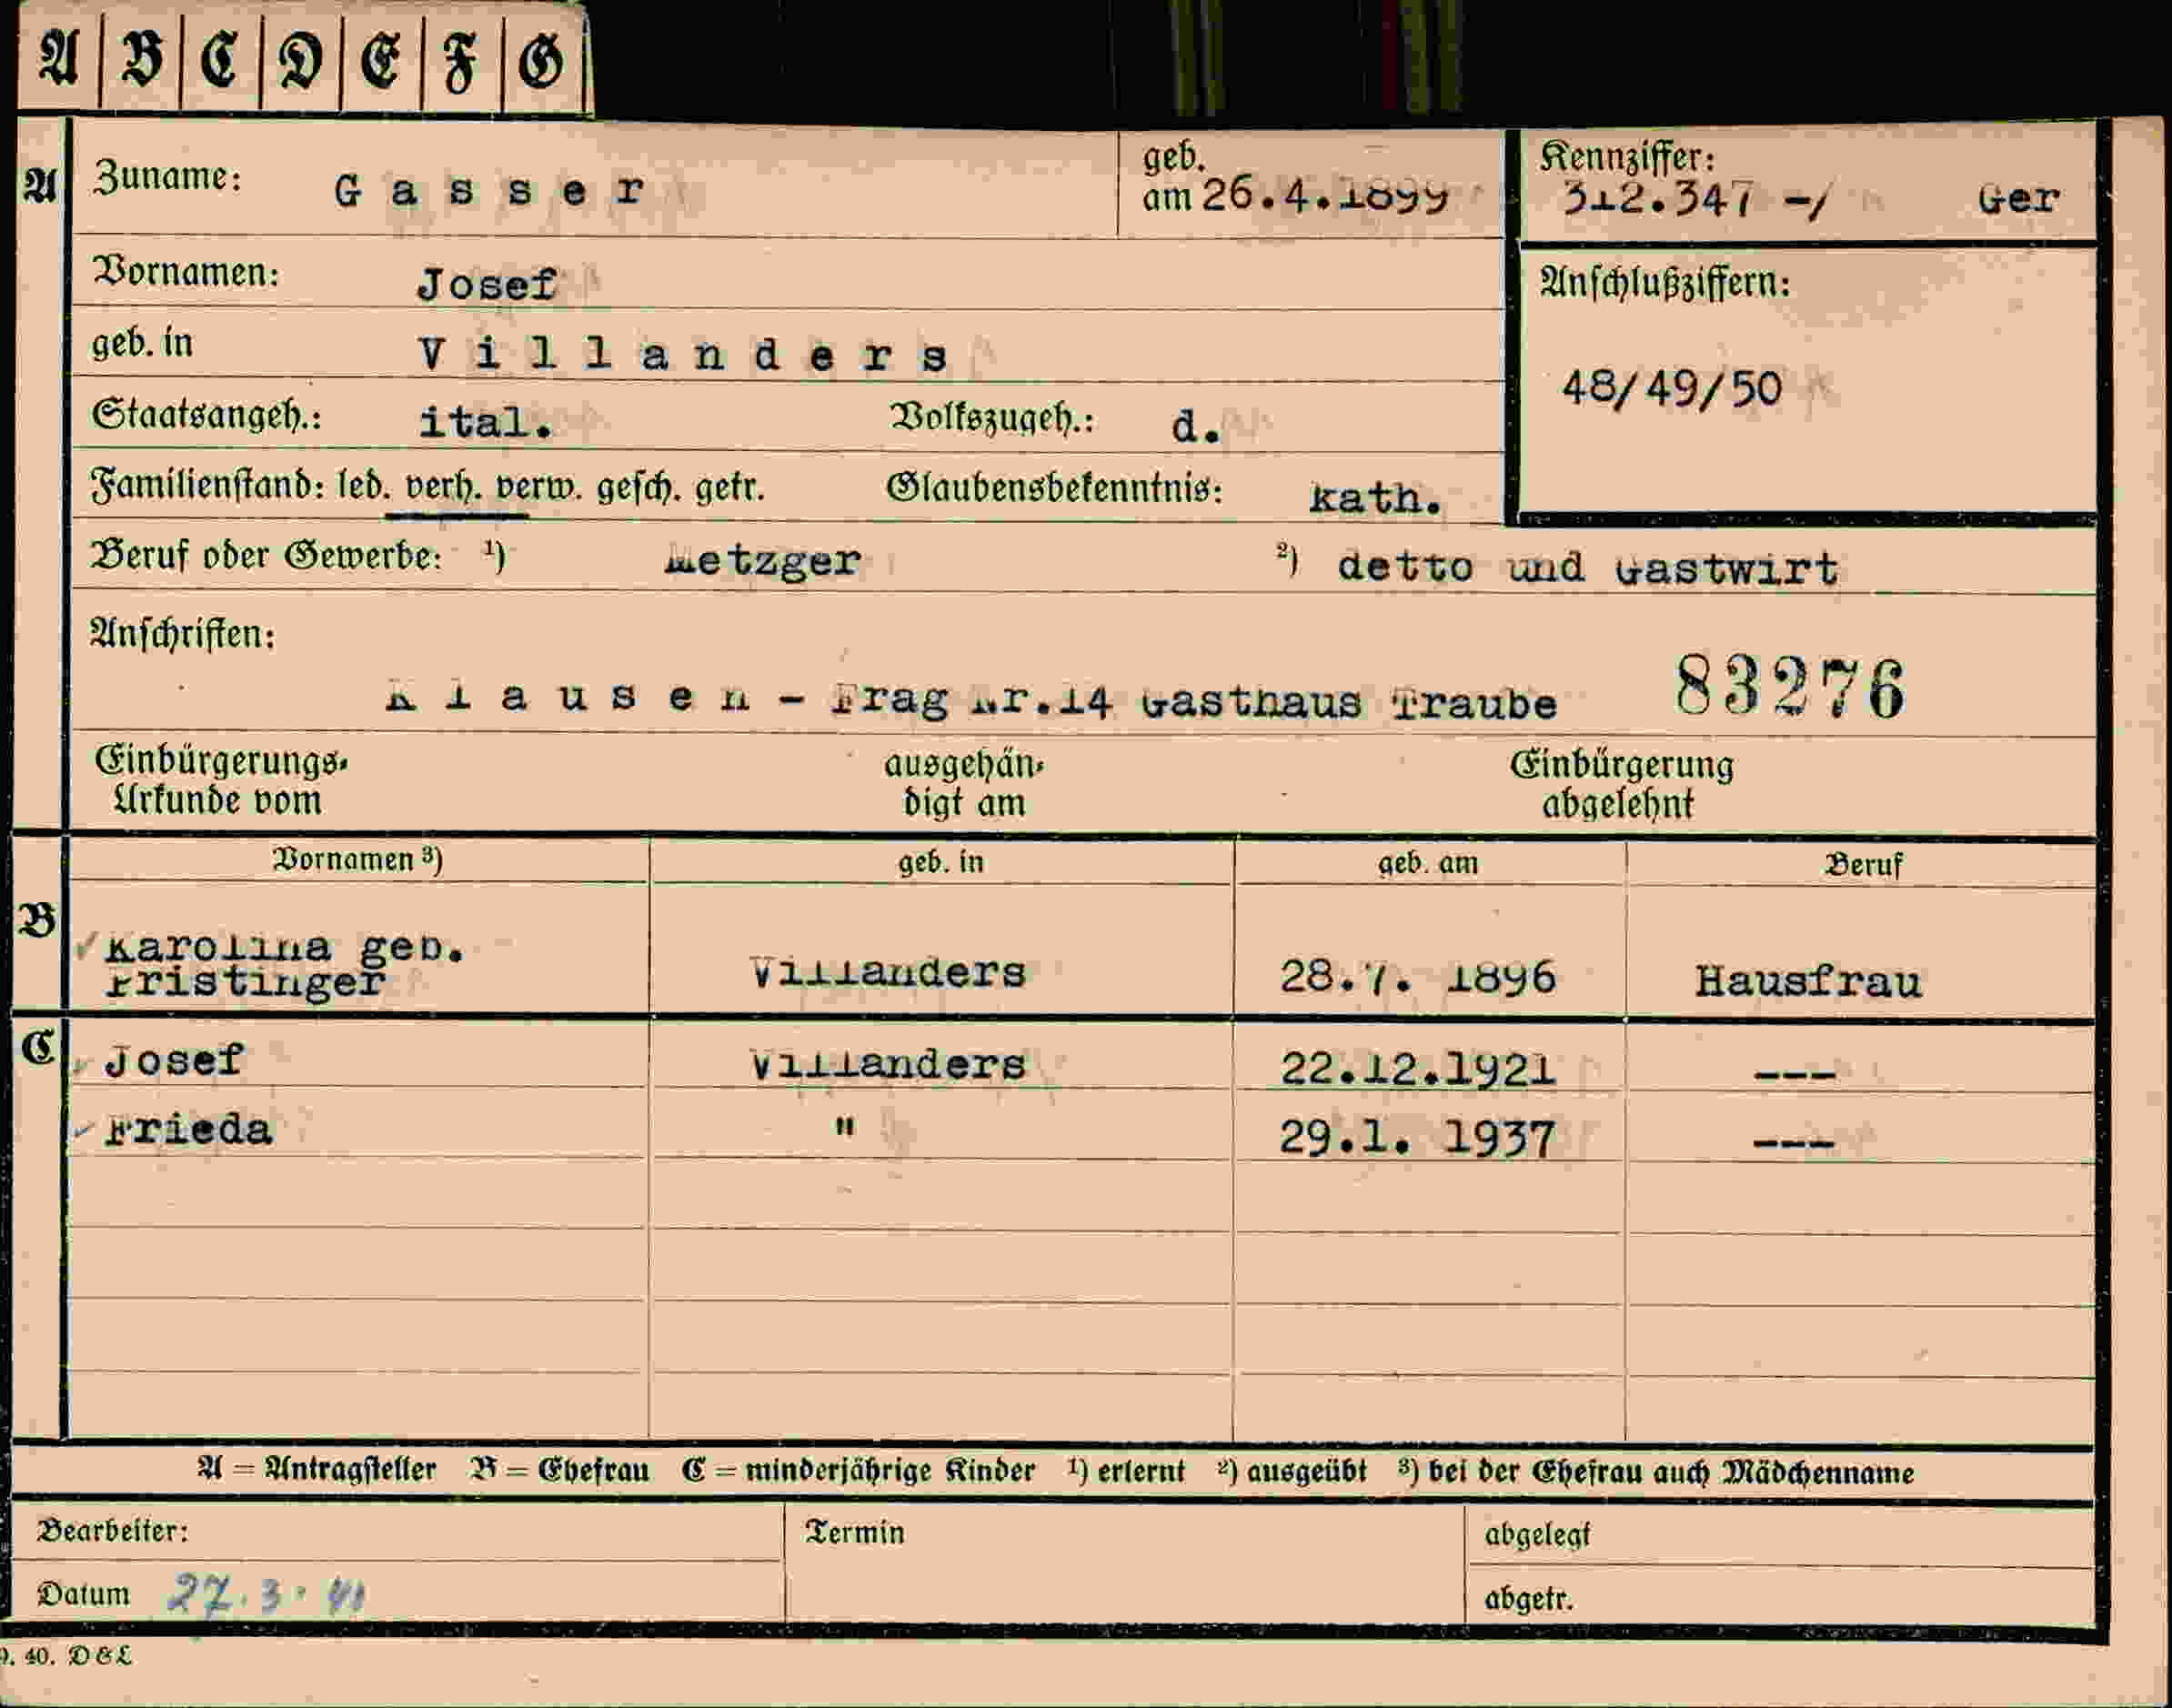 A B C D E F G
A Zuname: Gasser geb. am 26.4.1899 Kennziffer: 312.347 -/ Ger
Vornamen: Josef Anschlußziffern:
geb. in Villanders 48/49/50
Staatsangeh.: ital. Volkszugeh.: d.
Familienstand: led. verh. verw. gesch. getr. Glaubensbekenntnis: kath.
Beruf oder Gewerbe: 1) Metzger 2) detto und Gastwirt
Anschriften:
Klausen - Frag Nr.14 Gasthaus Traube 83276
Einbürgerungs- ausgehän- Einbürgerung
Urkunde vom digt am abgelehnt
Vornamen 3) geb. in geb. am Beruf
B Karolina geb.
Pristinger Villanders 28.7. 1896 Hausfrau
C Josef Villanders 22.12.1921 ---
Frieda " 29.1. 1937 ---
A = Antragsteller B = Ehefrau C = minderjährige Kinder 1) erlernt 2) ausgeübt 3) bei der Ehefrau auch Mädchenname
Bearbeiter: Termin abgelegt
Datum 27.3.41 abgetr.
40. D&L